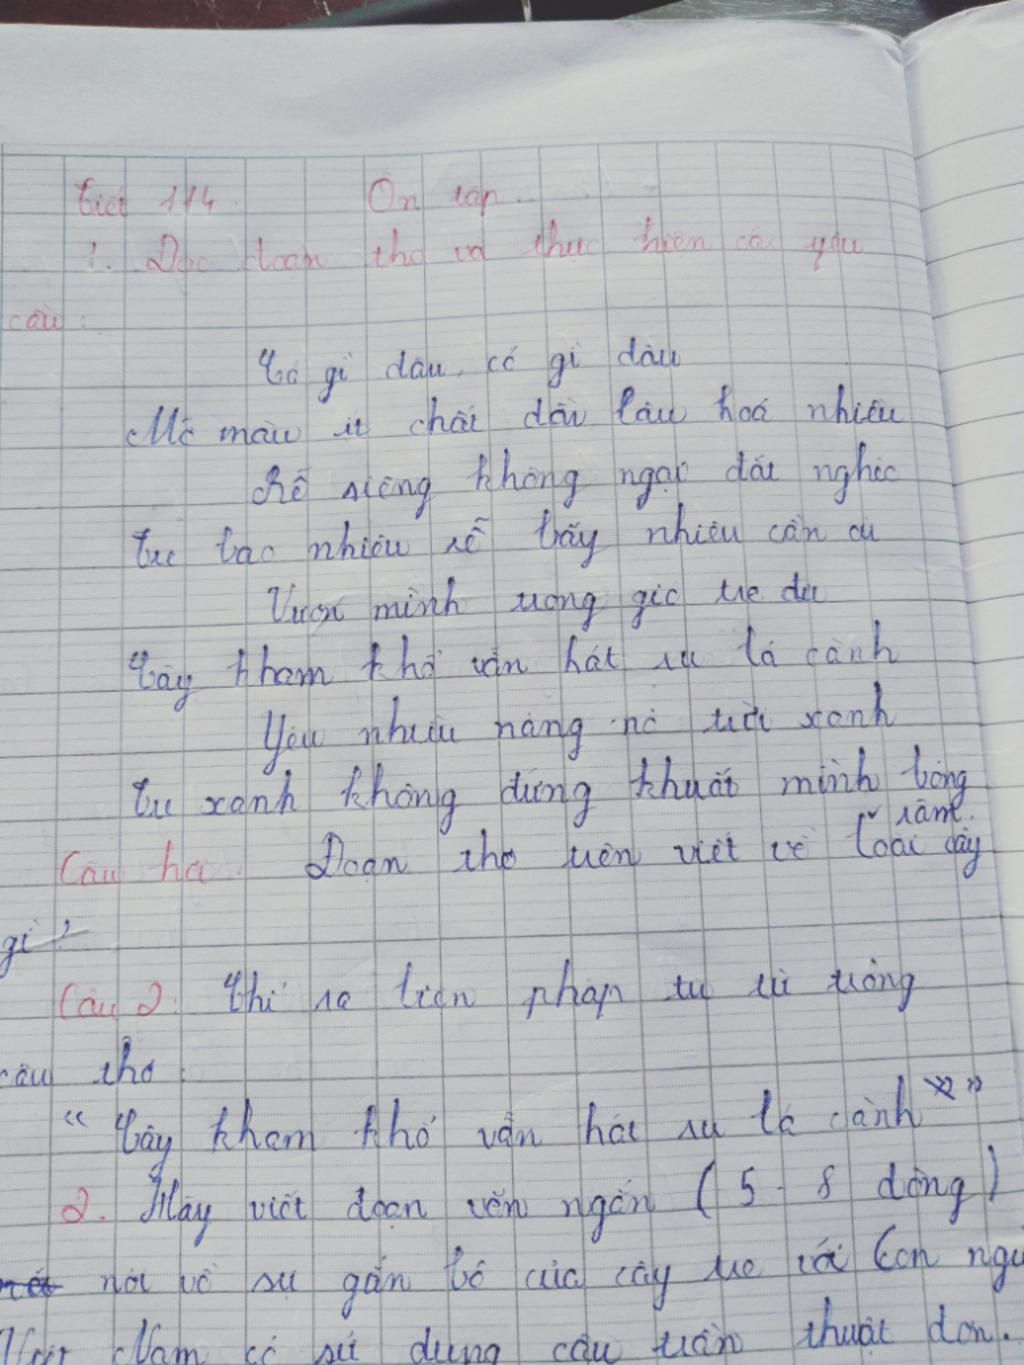 Tiết 114 Ôn tập
1. Đọc đoạn thơ và thực hiện các yêu
cầu:
Có gì đâu, có gì đâu
Mỡ màu ít chất dồn lâu hoá nhiều
Rễ siêng không ngại đất nghèo
Tre bao nhiêu rễ bấy nhiêu cần cù
Vươn mình trong gió tre đu
Cây kham khổ vẫn hát ru lá cành
Yêu nhiều nắng nỏ trời xanh
Tre xanh không đứng khuất mình bóng
râm.
Câu hỏi Đoạn thơ trên viết về loài cây
gì?
Câu 2: Chỉ ra biện pháp tu từ trong
câu thơ:
"Cây kham khổ vẫn hát ru lá cành"
2. Hãy viết đoạn văn ngắn (5 - 8 dòng)
nói về sự gắn bó của cây tre với con ngư
Việt Nam có sử dụng câu trần thuật đơn.